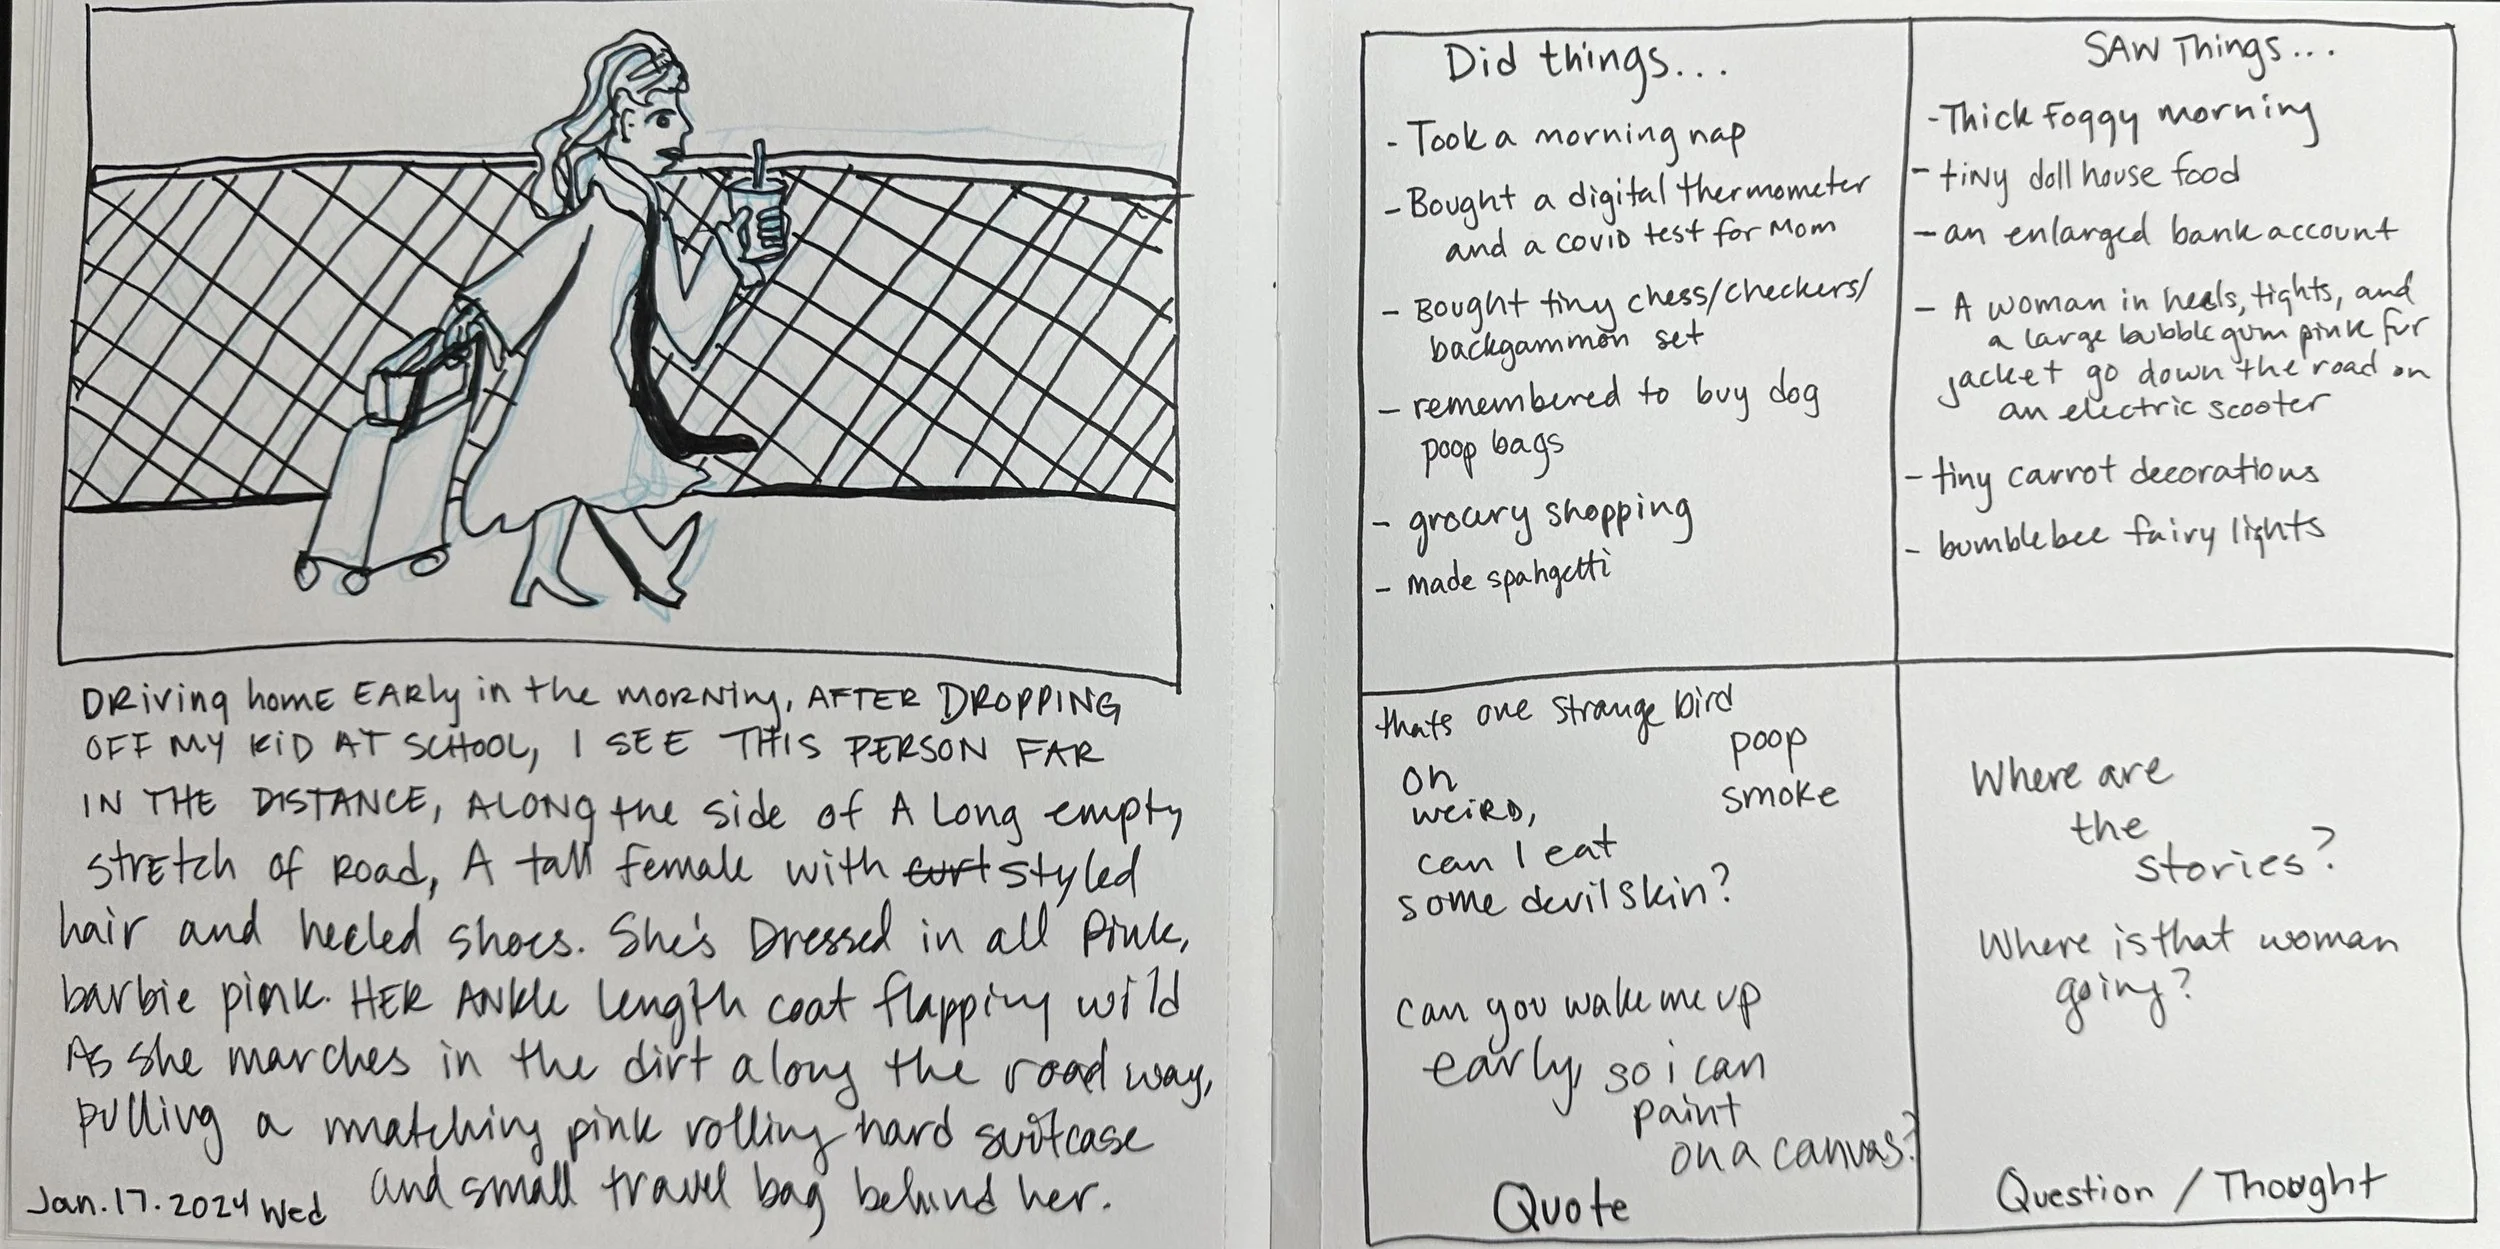 DRiving home EARly in the morning, AFTER DROPPING
OFF MY KID AT SCHOOL, I SEE THIS PERSON FAR
IN THE DISTANCE, ALONG the side of A Long empty
stretch of Road, A tall female with curt styled
hair and heeled shoes. She's Dressed in all Pink,
barbie pink. HER ANKle length coat flapping wild
As she marches in the dirt along the road way,
pulling a matching pink rolling hard suitcase
and small travel bag behind her.
Jan.17.2024 Wed
Did things...
- Took a morning nap
- Bought a digital thermometer
and a covid test for Mom
- Bought tiny chess/checkers/
backgammon set
- remembered to buy dog
poop bags
- grocery shopping
- made spahgetti
SAW Things...
- Thick Foggy morning
- tiny doll house food
- an enlarged bank account
- A woman in heels, tights, and
a large bubble gum pink fur
jacket go down the road on
an electric scooter
- tiny carrot decorations
- bumblebee fairy lights
thats one strange bird
poop
smoke
oh
weird,
can I eat
some devil skin?
can you wake me up
early, so i can
paint
on a canvas?
Quote
Where are
the
stories?
Where is that woman
going?
Question / Thought